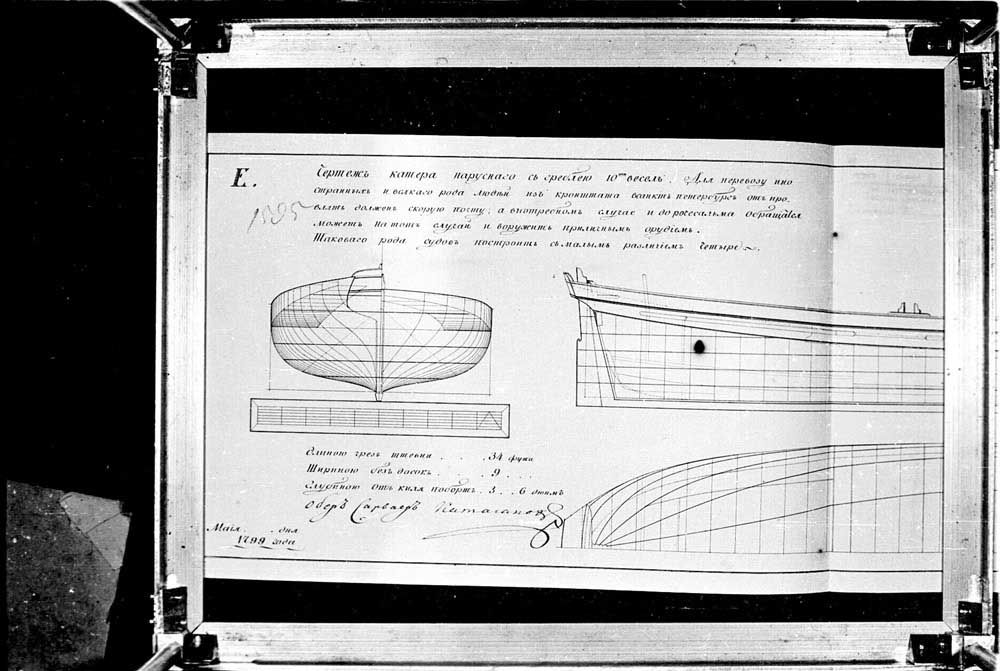 Е.
Чертежъ катера паруснаго съ греблею 10ти веселъ. Для перевозу ино
странныхъ и всякаго рода людей изъ кронштата
влять долженъ скорую почту, а впотребномъ случае и до россальма обращатся
можетъ на тотъ случай и воружить приличнымъ орудіемъ.
Таковаго рода судовъ построить съ малымъ различіемъ четыре
1595
Длиною чрезъ штевни . . . 34 фута
Шириною безъ досокъ . . 9 . . .
Глубиною отъ киля поборт. 3 . . 6 дюимъ
Оберъ Сарваеръ Катасановъ
Маія . . . дня
1799 года